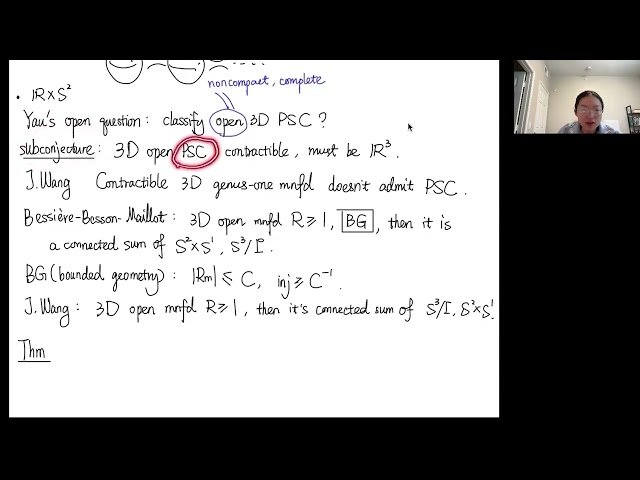 noncompact, complete
• ℝ×S²
Yau's open question: classify open 3D PSC?
subconjecture: 3D open PSC contractible, must be ℝ³.
J. Wang Contractible 3D genus-one mnfd doesn't admit PSC.
Bessière-Besson-Maillot: 3D open mnfd R≥1, BG, then it is
a connected sum of S²×S¹, S³/Γ.
BG (bounded geometry): |Rm| ≤ C, inj ≥ C⁻¹.
J. Wang: 3D open mnfd R≥1, then it's connected sum of S³/Γ, S²×S¹.
Thm